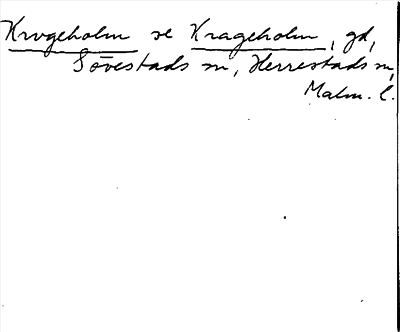 Krogeholm se Krageholm, gd,
Sövestads sn, Herrestads sn,
Malm. l.